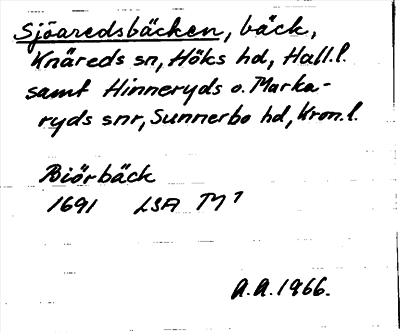 Sjöaredsbäcken, bäck,
Knäreds sn, Höks hd, Hall.l.
samt Hinneryds o. Marka-
ryds snr, Sunnerbo hd, Kron.l.
Biörbäck
1691 LSA M7
A.A. 1966.